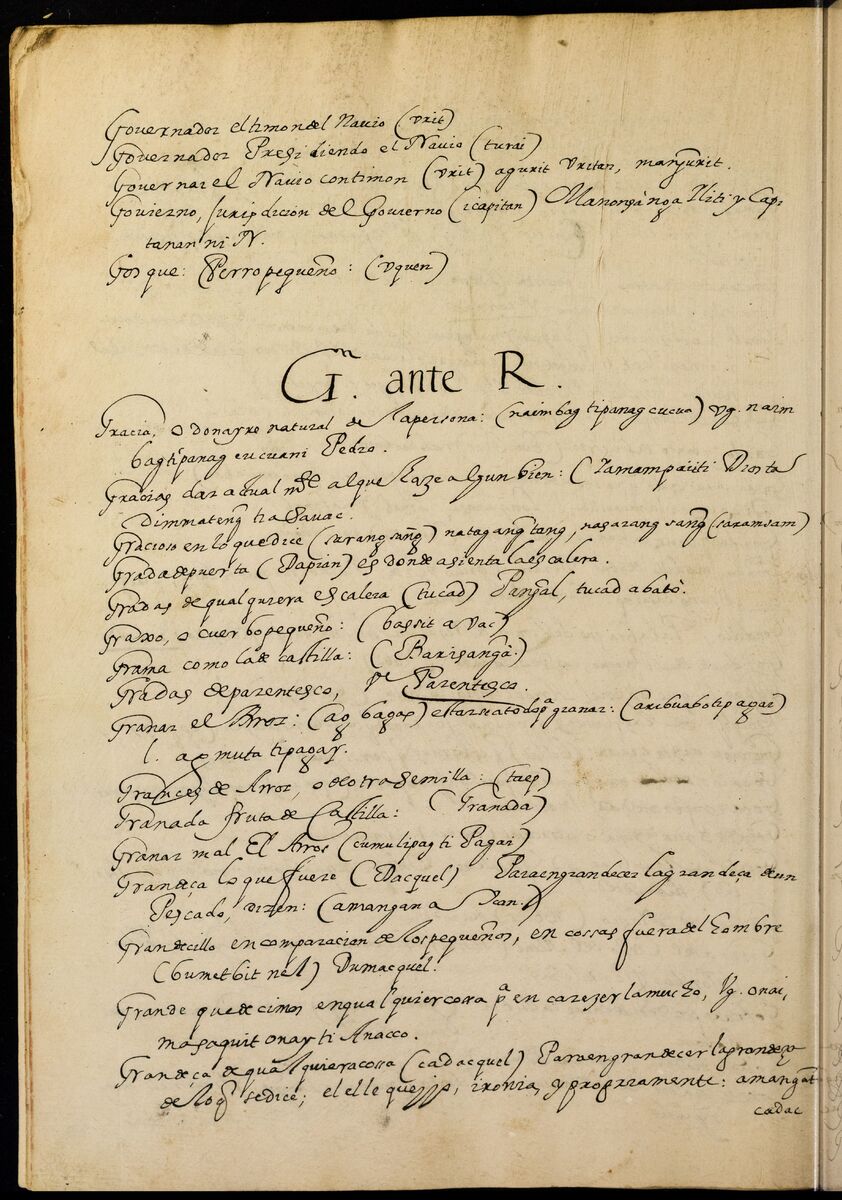 Governador el timon del Navio (vrit)
Governador Presidiendo el Navio (turai)
Governar el Navio con timon (vrit) agurit vritan, mangurit.
Govierno, juripdicion del Govierno (icapitan) Manongànga Iliti y Capi
tanan ni N.
Gosque: (Perro pequeño: (vquen)
G. ante R.
Gracia, o donayre natural de la persona: (naimbag tipanag cucua) vg. naim
bag tipanag cucuani Pedro.
Gracias dar actual al que haze algun bien: ( Dios ta
dimmateng
Gracioso en lo que dice natagangtang, (saramsam)
Grada de puerta (Dapian) es donde asienta la escalera.
Gradas de qualquiera escalera (tucad) Pangal, tucad abatò.
Graxo, o cuerbo pequeño: (bassit a vac)
Grama como la de castilla: (Barisangà.)
Gradas de parentesco, Parentesco.
Granar el Arroz: (ag bagas) estarseatodo pa granar: (aribuabo ti pagai)
l. agmuta ti pagay.
Grances de Arroz, o de otra semilla: (taep)
Granada fruta de Castilla: (Granada)
Granar mal El Arros (cumulipag ti Pagai)
Grandeça lo que fuere (Dacquel) Para engrandecer la grandeça de un
Pescado, dizen: (amangan a Ican.)
Grandecillo en comparacion de los pequeños, en cossas fuera del hombre
(bumetbit nel) Dumacquel.
Grande que decimos en qualquier cossa pa encarezerla mucho, Vg. onai,
masaquit onay ti Anacco.
Grandeça de qualquiera cossa (cadacquel) Para engrandecer la grandeza
de lo q se dice; el elle que ironia, y propriamente: amangàt
cadac